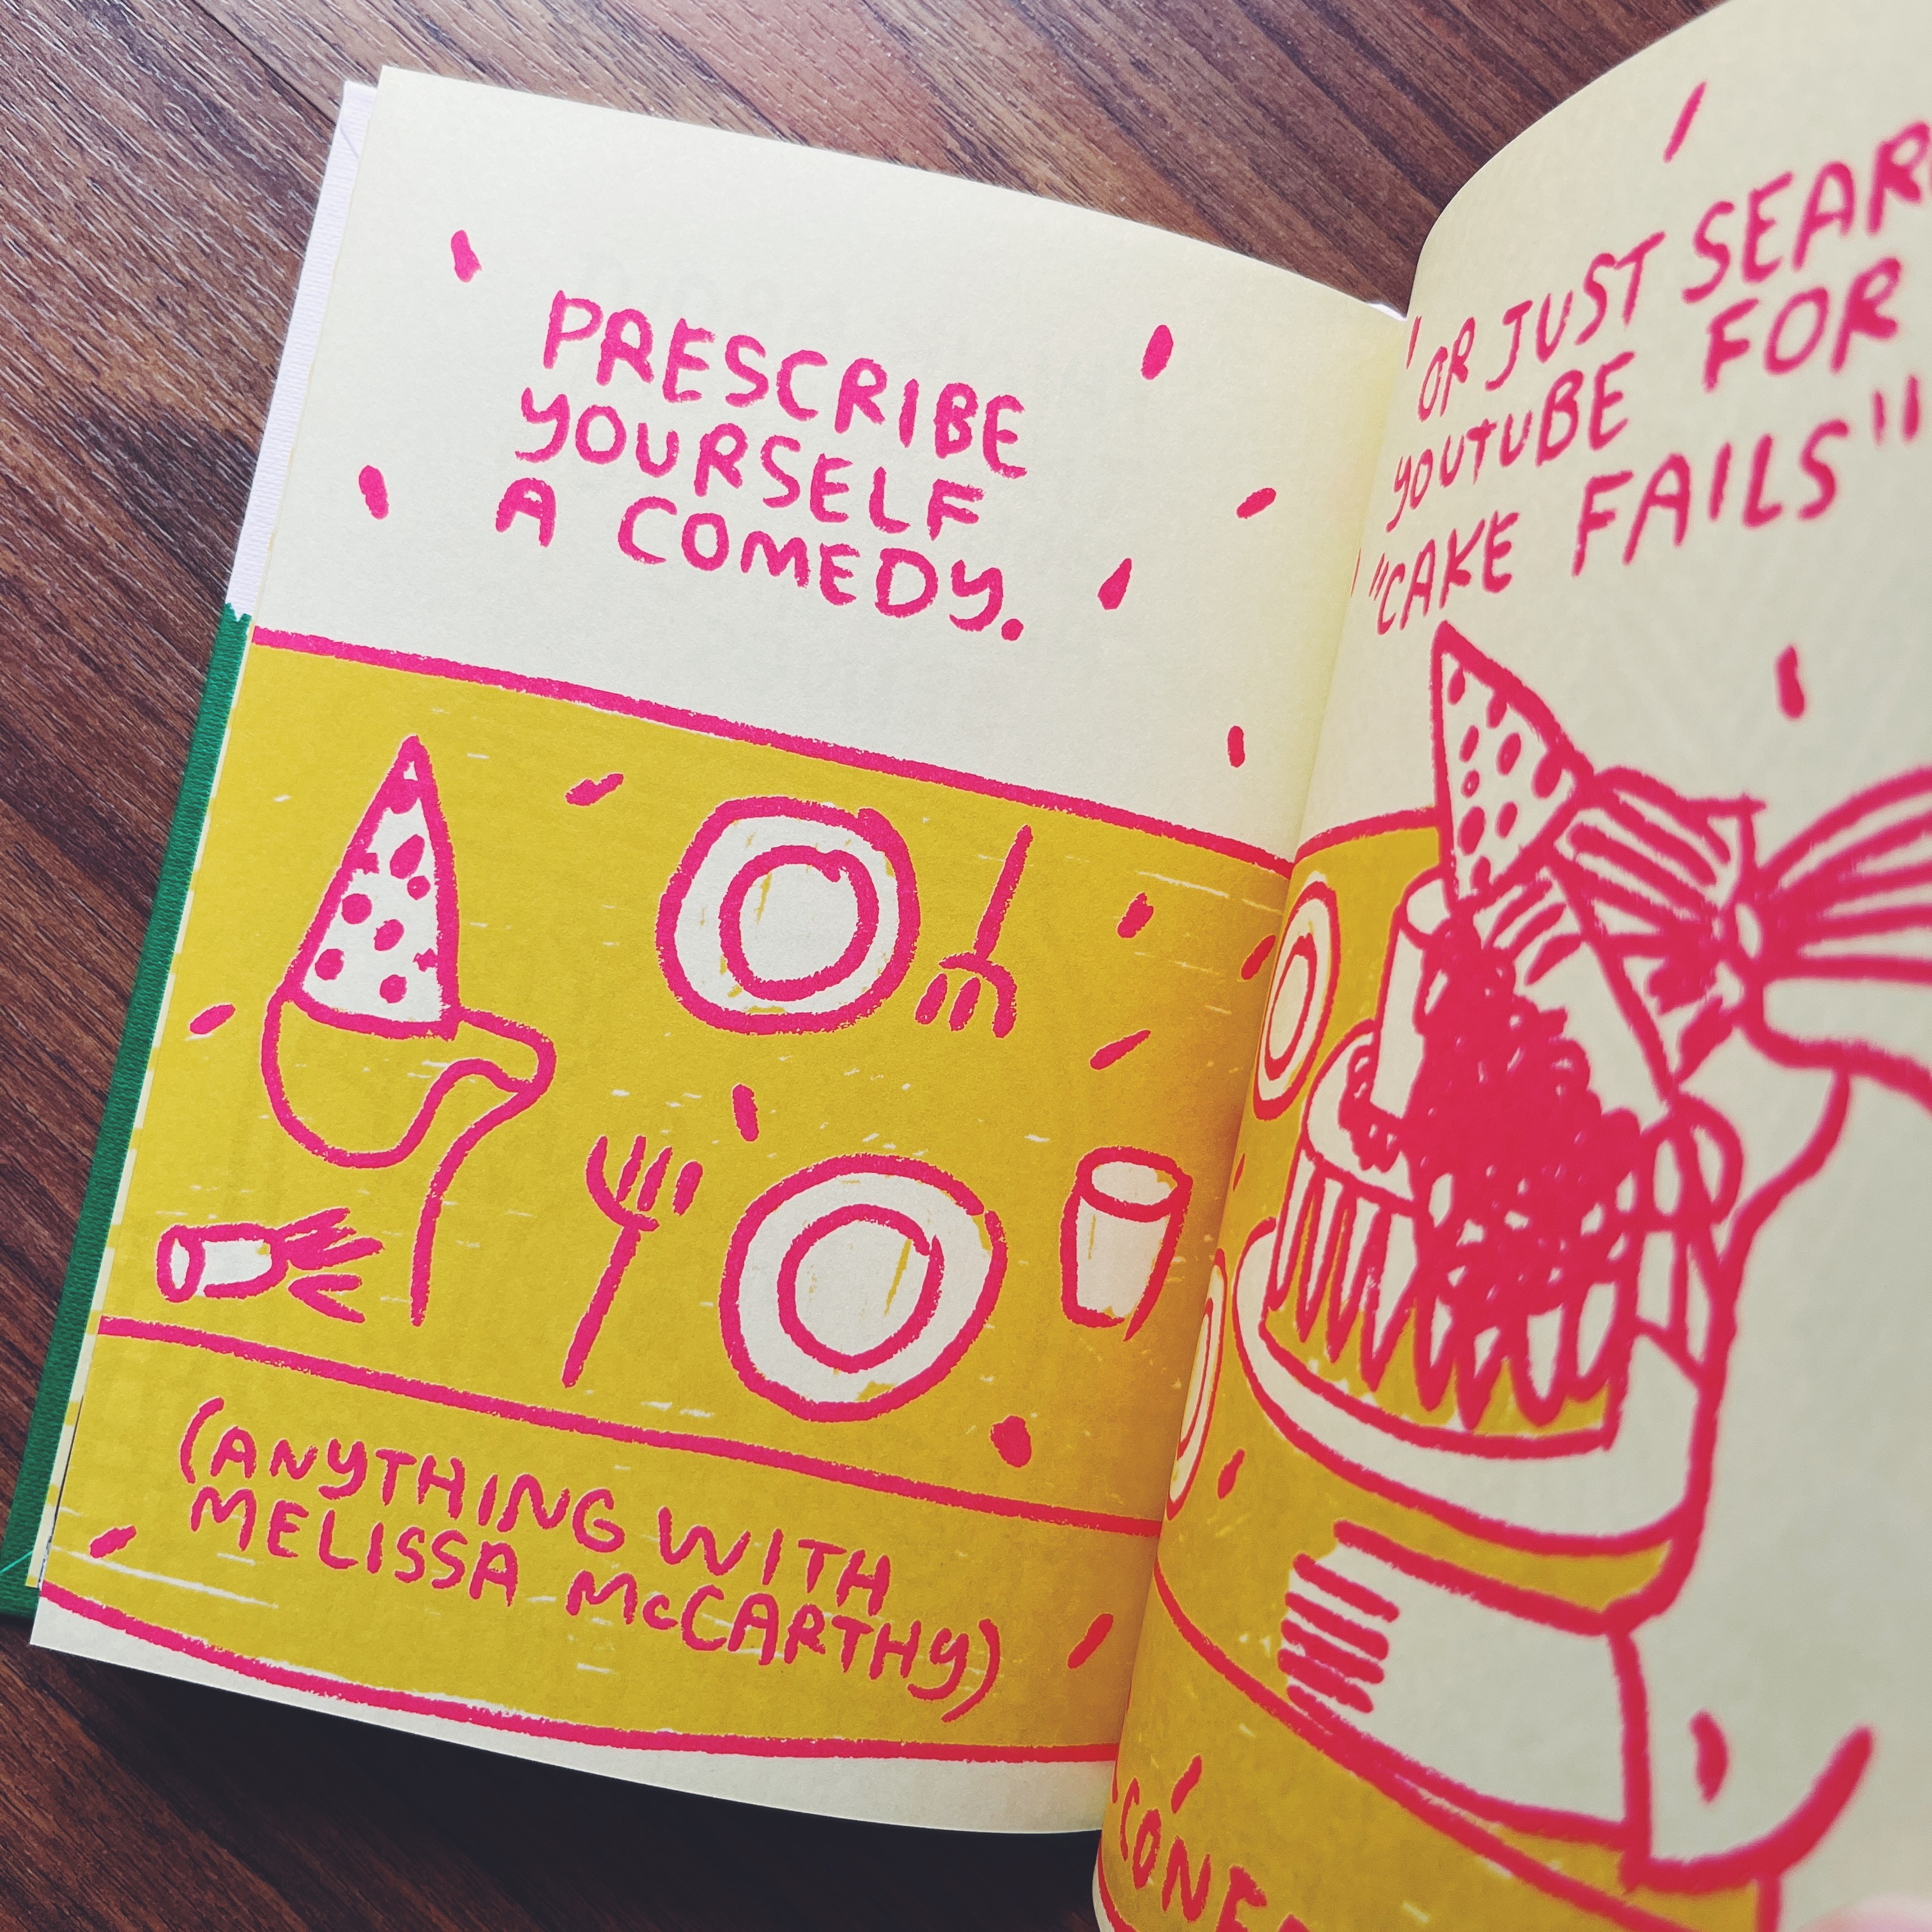 PRESCRIBE
YOURSELF
A COMEDY.
(ANYTHING WITH
MELISSA McCARTHY)
OR JUST
YOUTUBE FOR
"CAKE FAILS"